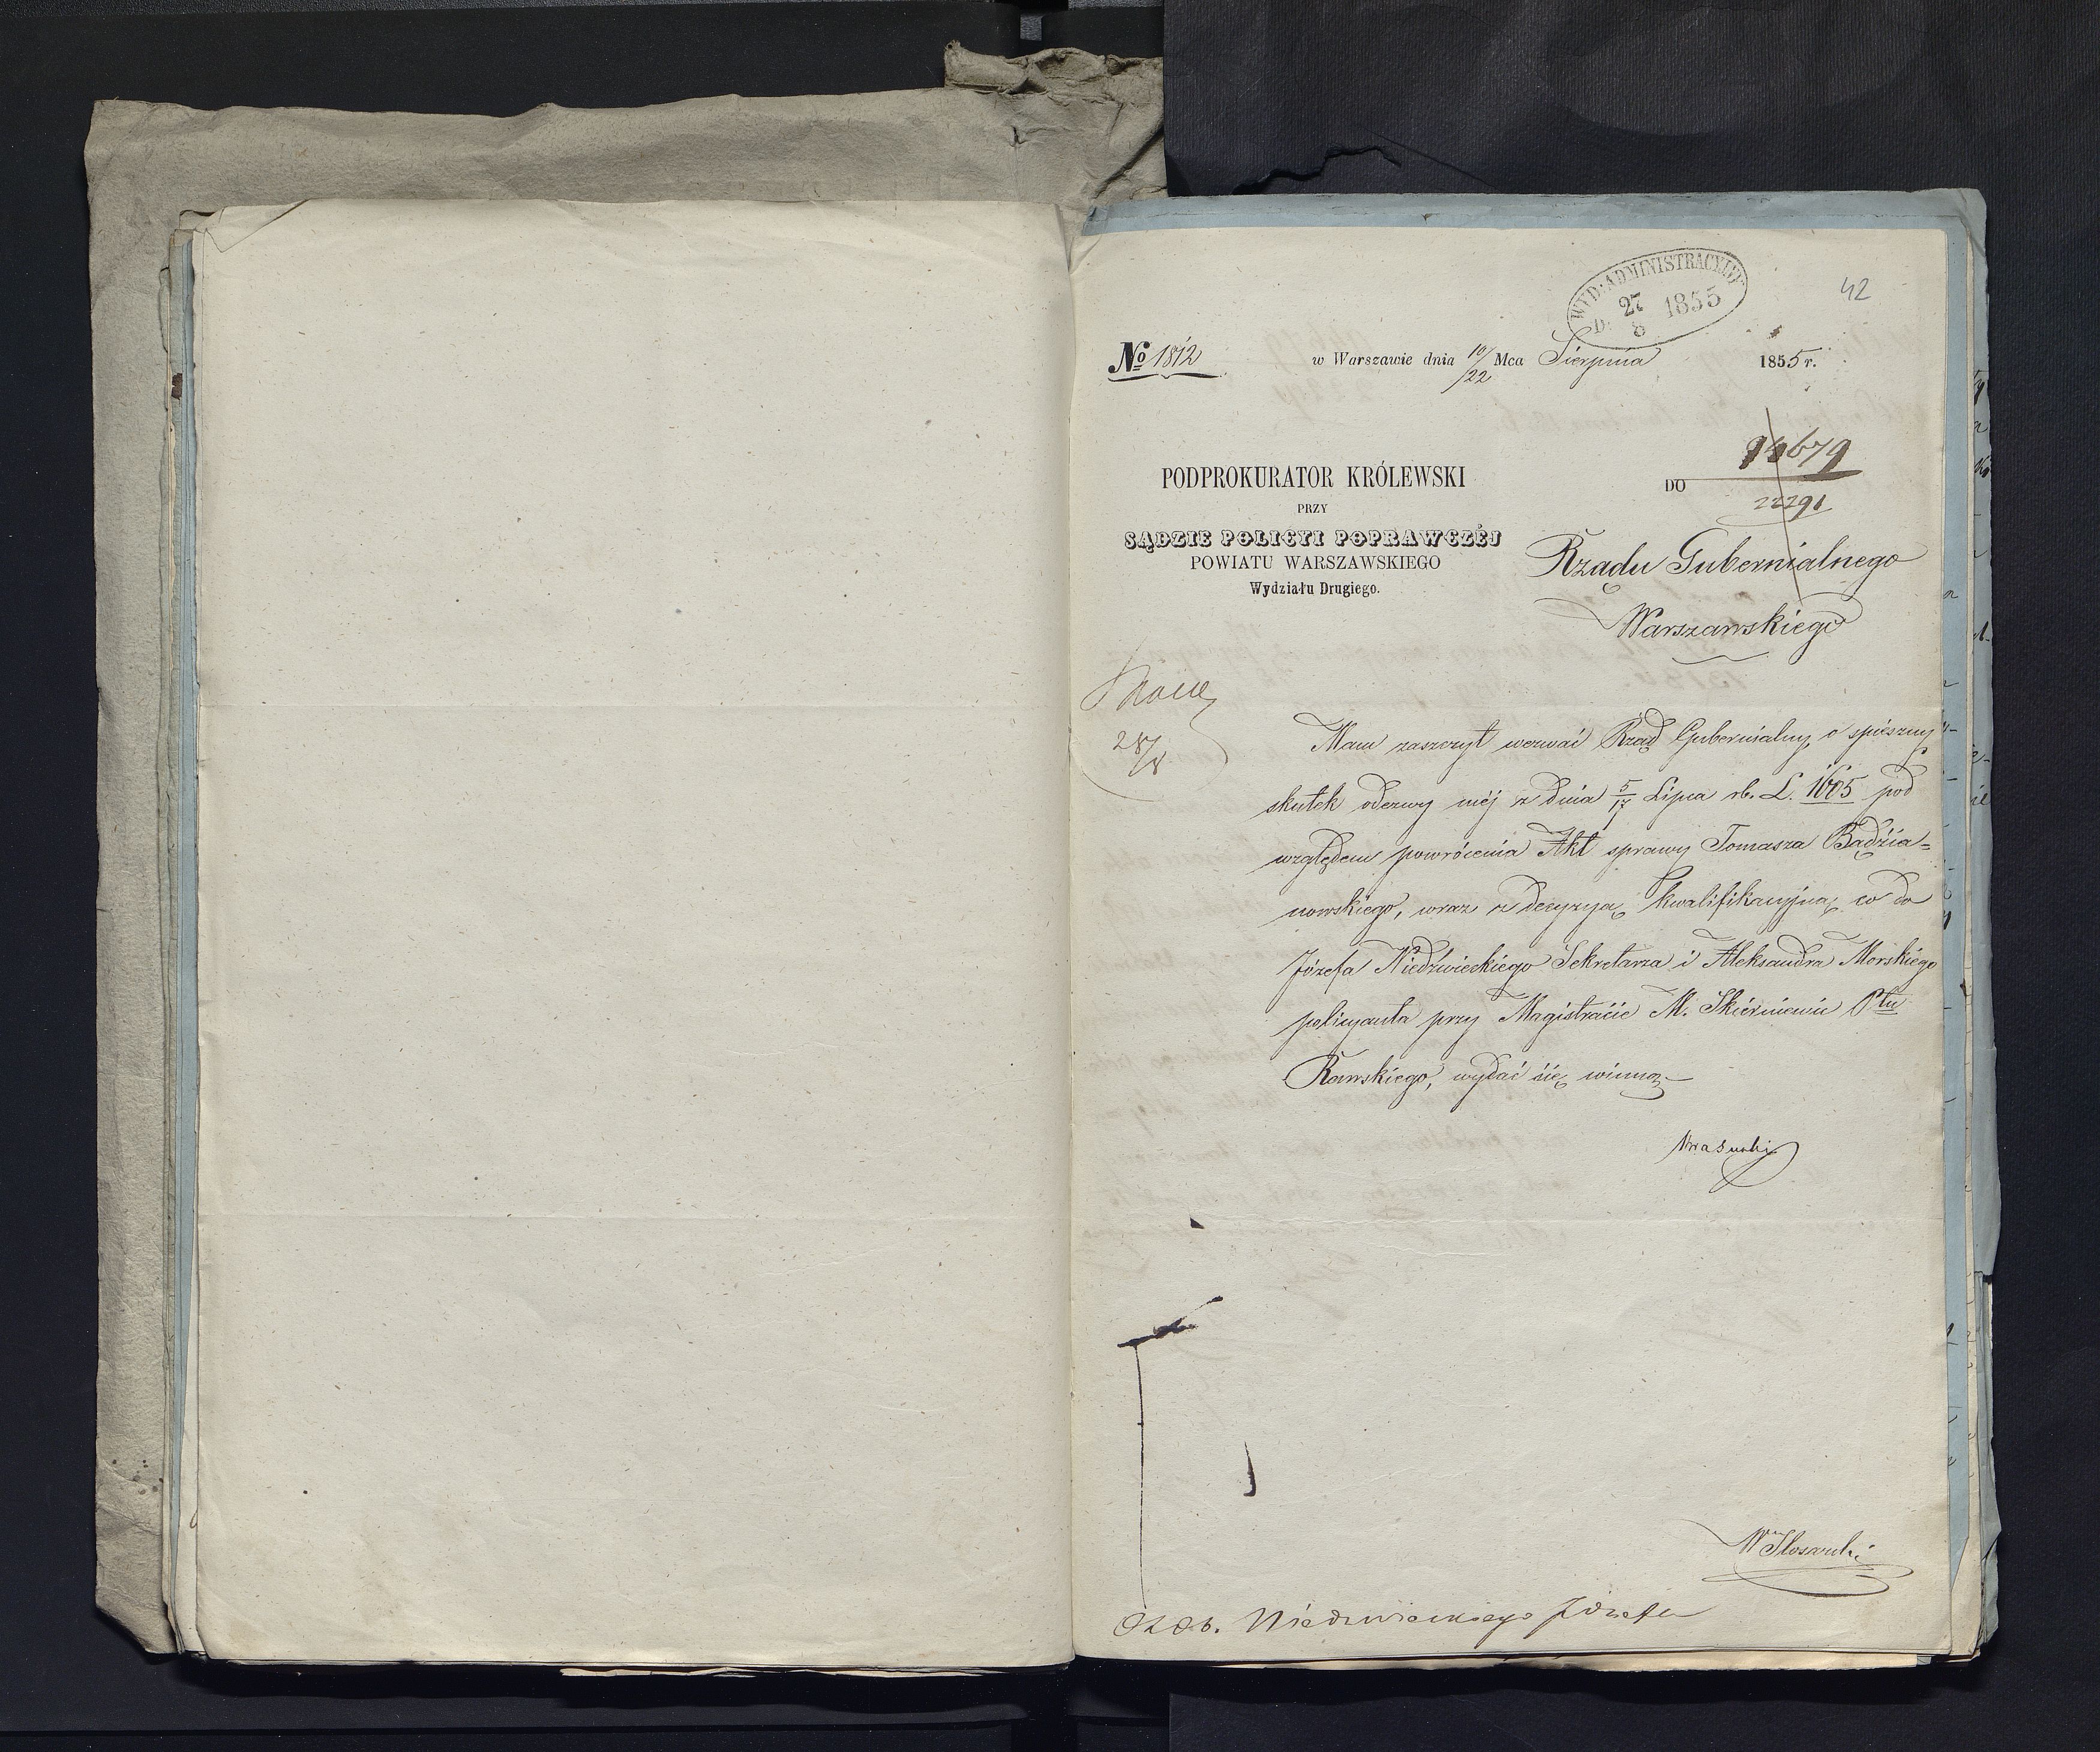 WYD: ADMINISTRACYJNY
D. 27/8 1855
42
No 1812
w Warszawie dnia 10/22 Mca Sierpnia 1855 r.
14679
22291
PODPROKURATOR KRÓLEWSKI
PRZY
SĄDZIE POLICYI POPRAWCZÉJ
POWIATU WARSZAWSKIEGO
Wydziału Drugiego.
DO
Rządu Gubernialnego
Warszawskiego
28/8
Mam zaszczyt wezwać Rząd Gubernialny o spieszny
skutek odezwy méj z dnia 5/17 Lipca rb. L. 1605 pod
względem powrócenia Akt sprawy Tomasza Bądzia=
nowskiego, wraz z decyzyą kwalifikacyjną co do
Józefa Niedźwieckiego Sekretarza i Aleksandra Morskiego
policyanta przy Magistracie M. Skierniewic Ptu
Rawskiego, wydać się winną
Osob. Niedzwieckiego Józefa